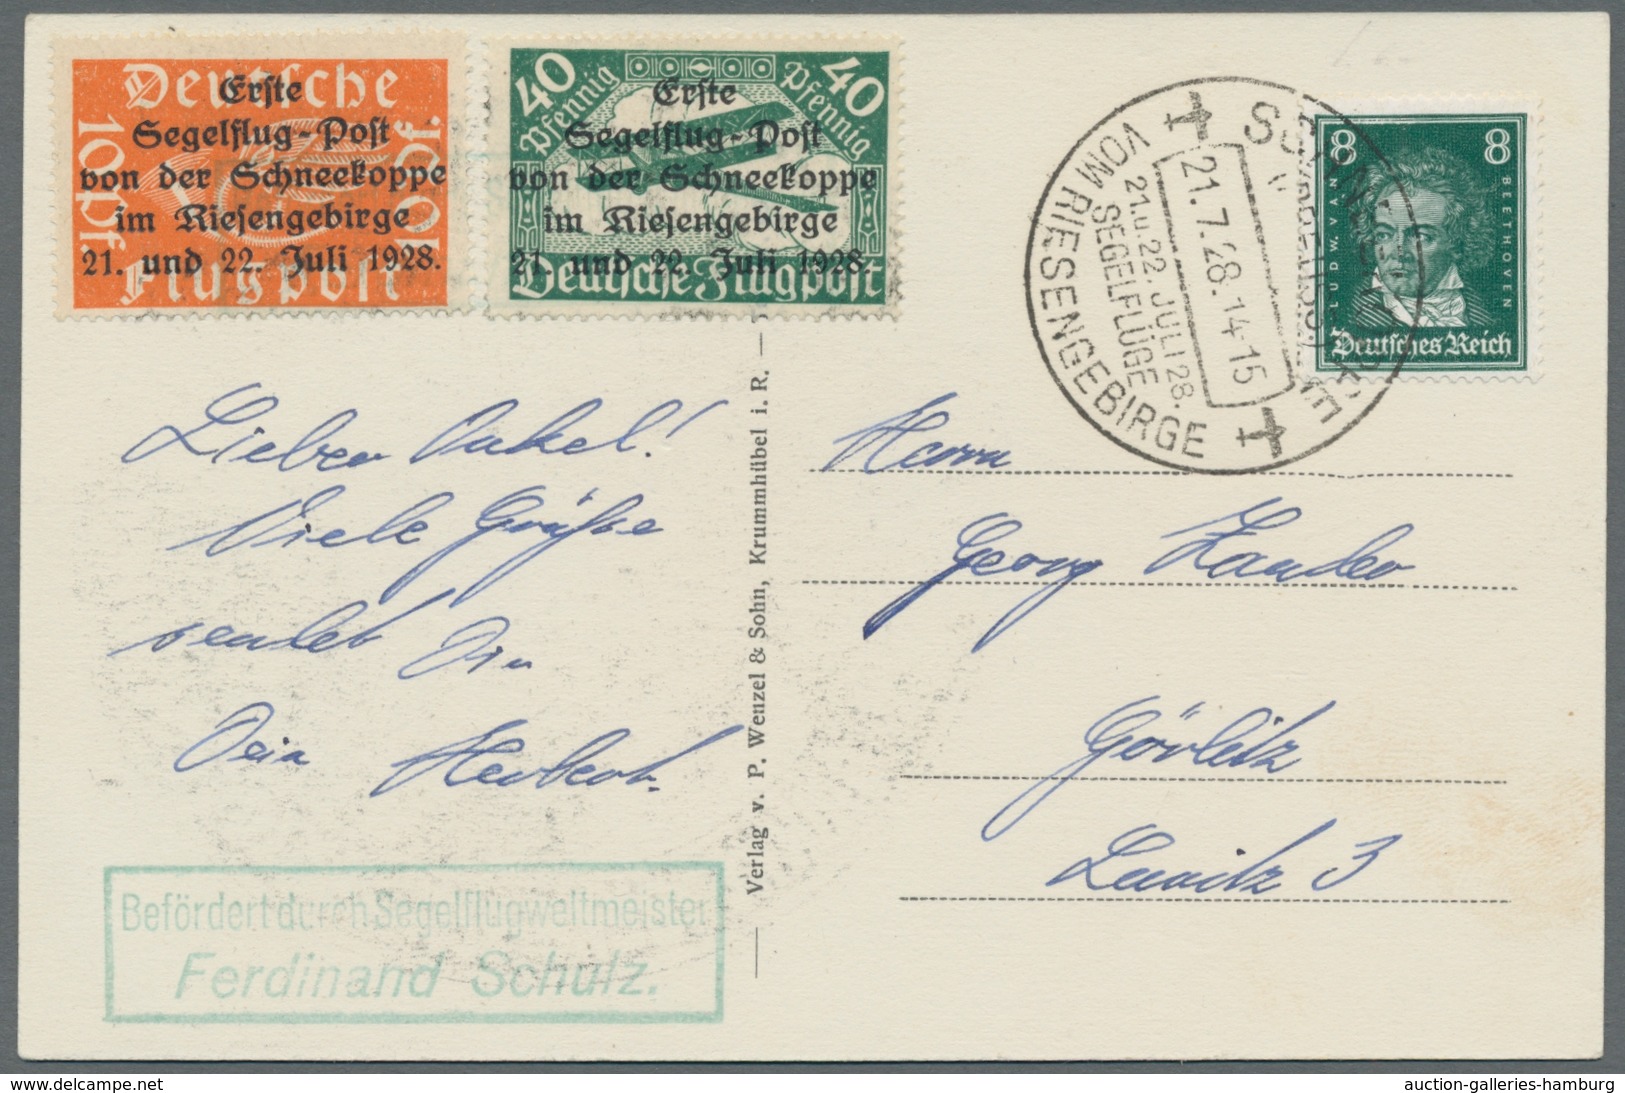 Deutsche
10 Pf.
10 Pf.
Flugpost
Erste
Segelflug-Post
von der Schneekoppe
im Riesengebirge
21. und 22. Juli 1928.
40 Pfennig
40 Pfennig
Deutsche Flugpost
Erste
Segelflug-Post
von der Schneekoppe
im Riesengebirge
21. und 22. Juli 1928.
21.7.28.14-15
21.u.22.JULI 28.
SEGELFLÜGE
VOM RIESENGEBIRGE
8 8
LUDW. VAN BEETHOVEN
Deutsches Reich
Lieber Onkel!
Viele Grüße
sendet Dir
Dein Herbert.
Verlag v. P. Wenzel & Sohn, Krummhübel i. R.
Herrn
Georg Zander
Görlitz
3
Befördert durch Segelflugweltmeister
Ferdinand Schulz.
auction-galleries-hamburg